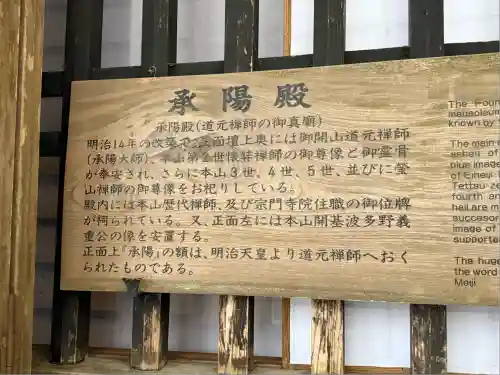 承陽殿
承陽殿(道元禅師の御真廟)
明治14年の改築で、正面壇上奥には御開山道元禅師
(承陽大師)、本山第2世懐弉禅師の御尊像と御霊骨
が奉安され、さらに本山3世、4世、5世、並びに瑩
山禅師の御尊像をお祀りしている。
殿内には本山歴代禅師、及び宗門寺院住職の御位牌
が祠られている。又、正面左には本山開基波多野義
重公の像を安置する。
正面上『承陽』の額は、明治天皇より道元禅師へおく
られたものである。
The Foun
mausoleum
known by
The main
ashes of
blue image
of Eiheiji
Tettsu a
fourth an
hall are m
successor
image of
supporte
The huge
the word
Meiji